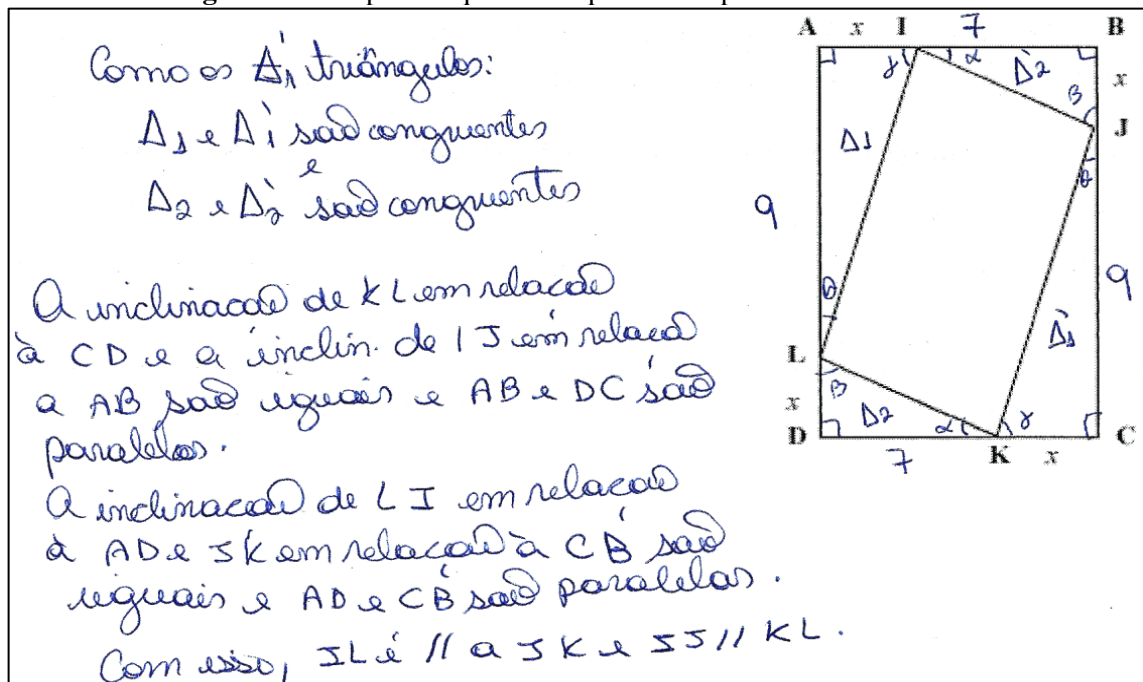 Como os Δ's triângulos:
Δ1 e Δ'1 são congruentes
e
Δ2 e Δ'2 são congruentes
A inclinacaõ de KL em relacaõ
à CD e a inclin. de IJ em relacã
a AB saõ iguais e AB e DC saõ
paralelos.
A inclinacaõ de LI em relacaõ
à AD e JK em relacaõ à CB saõ
iguais e AD e CB saõ paralelas.
Com isso, IL é // a JK e IJ // KL.
A x I 7 B
γ α Δ'2 x
β
Δ1 J
θ
9
9
θ
Δ'1
L
β
x Δ2 α γ
D 7 K x C